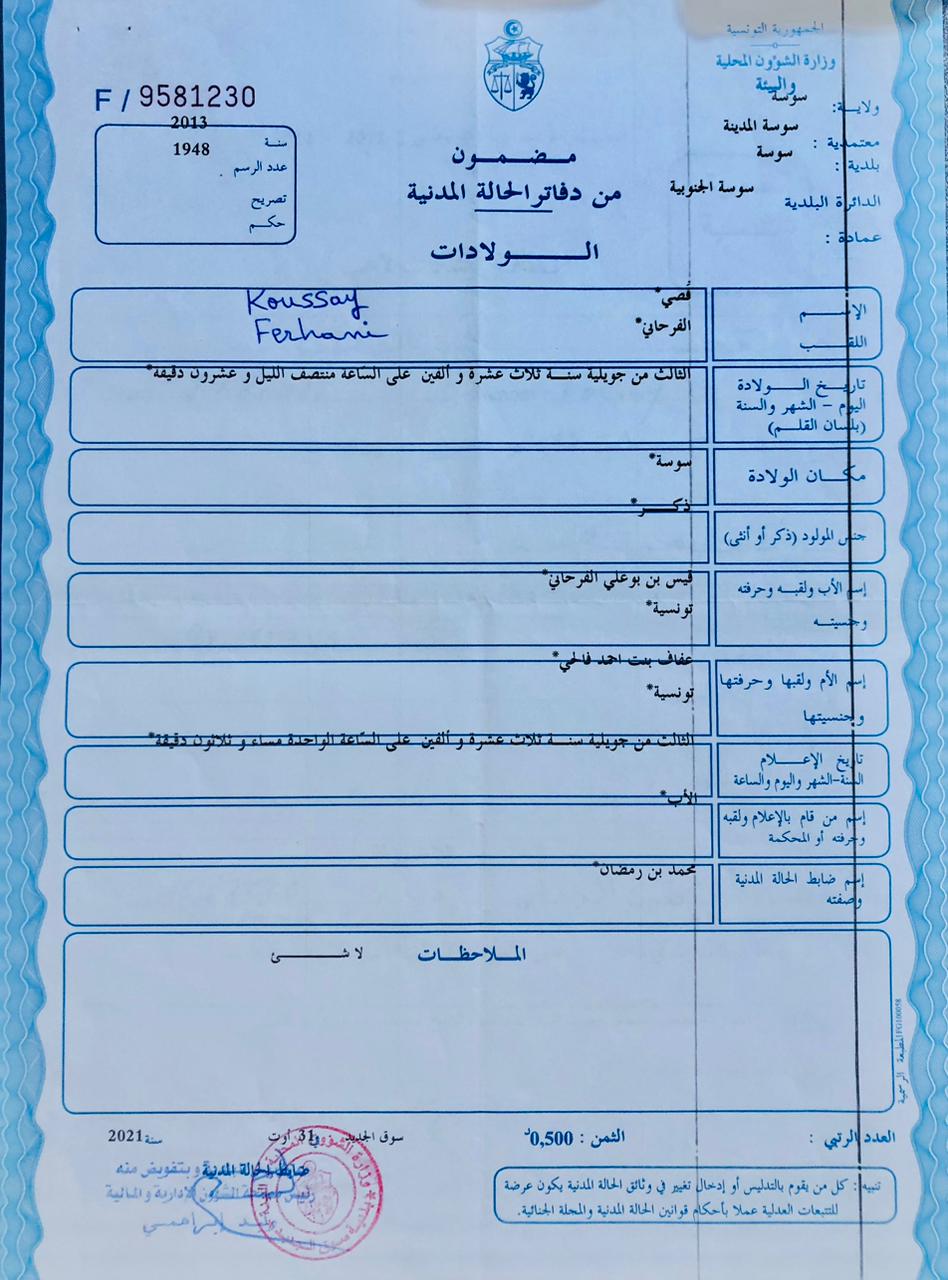 الجمهورية التونسية
وزارة الشؤون المحلية
والبيئة
ولاية: سوسة
معتمدية : سوسة المدينة
بلدية : سوسة
الدائرة البلدية سوسة الجنوبية
عمادة :
F / 9581230
سنة 2013
عدد الرسم 1948
تصريح
حكم
مضمون
من دفاتر الحالة المدنية
الولادات
الإسم قُصي*
Koussay
اللقب الفرحاني*
Ferhani
تاريخ الولادة الثالث من جويلية سنة ثلاث عشرة و ألفين على الساعة منتصف الليل و عشرون دقيقة*
اليوم – الشهر والسنة
(بلسان القلم)
مكان الولادة سوسة*
جنس المولود (ذكر أو أنثى) ذكر*
إسم الأب ولقبه وحرفته قيس بن بوعلي الفرحاني*
وجنسيته تونسية*
إسم الأم ولقبها وحرفتها عفاف بنت احمد فالحي*
وجنسيتها تونسية*
تاريخ الإعلام الثالث من جويلية سنة ثلاث عشرة و ألفين على الساعة الواحدة مساء و ثلاثون دقيقة*
السنة-الشهر واليوم والساعة
إسم من قام بالإعلام ولقبه الأب*
وحرفته أو المحكمة
إسم ضابط الحالة المدنية محمد بن رمضان*
وصفته
الملاحظات لا شئ
المطبعة الرسمية FG100058
العدد الرتبي :
الثمن : 0,500د
سوق الجديد 31 أوت سنة 2021
ضابط الحالة المدنية
وبتفويض منه
رئيس مصلحة الشؤون الإدارية والمالية
تنبيه : كل من يقوم بالتدليس أو إدخال تغيير في وثائق الحالة المدنية يكون عرضة
للتتبعات العدلية عملا بأحكام قوانين الحالة المدنية والمجلة الجنائية.